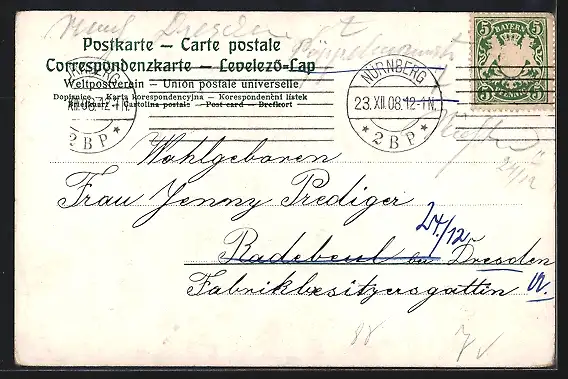 nach Dresden
Postkarte – Carte postale
Correspondenzkarte – Levelező-Lap
Weltpostverein – Union postale universelle
Dopisnice – Karta korespondencyjna – Korespondenční lístek
Briefkort – Cartolina postale – Post card – Brefkort
NÜRNBERG
XII.08.12-1N.
2BP
NÜRNBERG
23.XII.08.12-1N.
* 2BP *
5 BAYERN 5
5 5
24/12
Wohlgeboren
Frau Jenny Prediger
24./12.
Radebeul bei Dresden
Fabrikbesitzersgattin